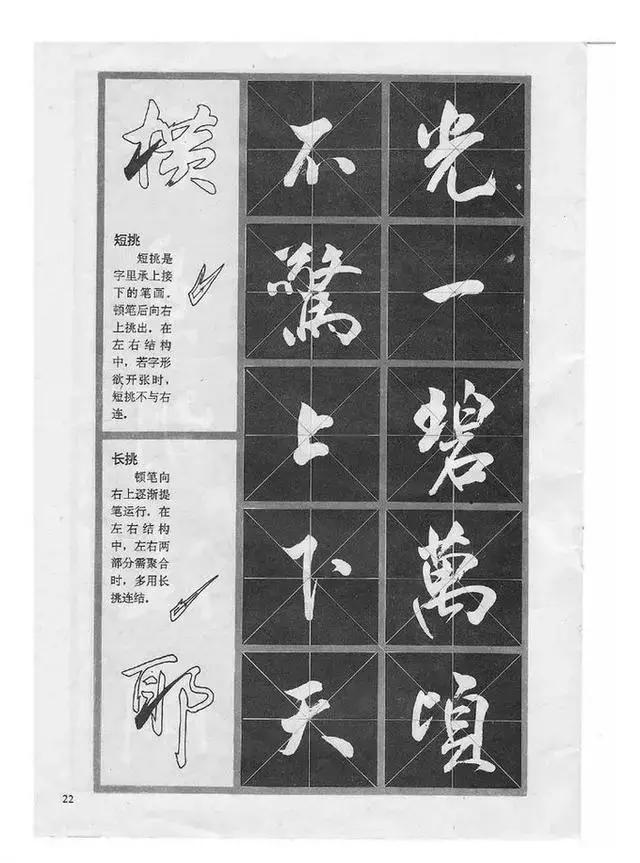 横
短挑
短挑是
字里承上接
下的笔画．
顿笔后向右
上挑出．在
左右结构
中，若字形
欲开张时，
短挑不与右
连．
长挑
顿笔向
右上逐渐提
笔运行．在
左右结构
中，左右两
部分需聚合
时，多用长
挑连结．
耶
不驚上下天
光一碧萬頃
22